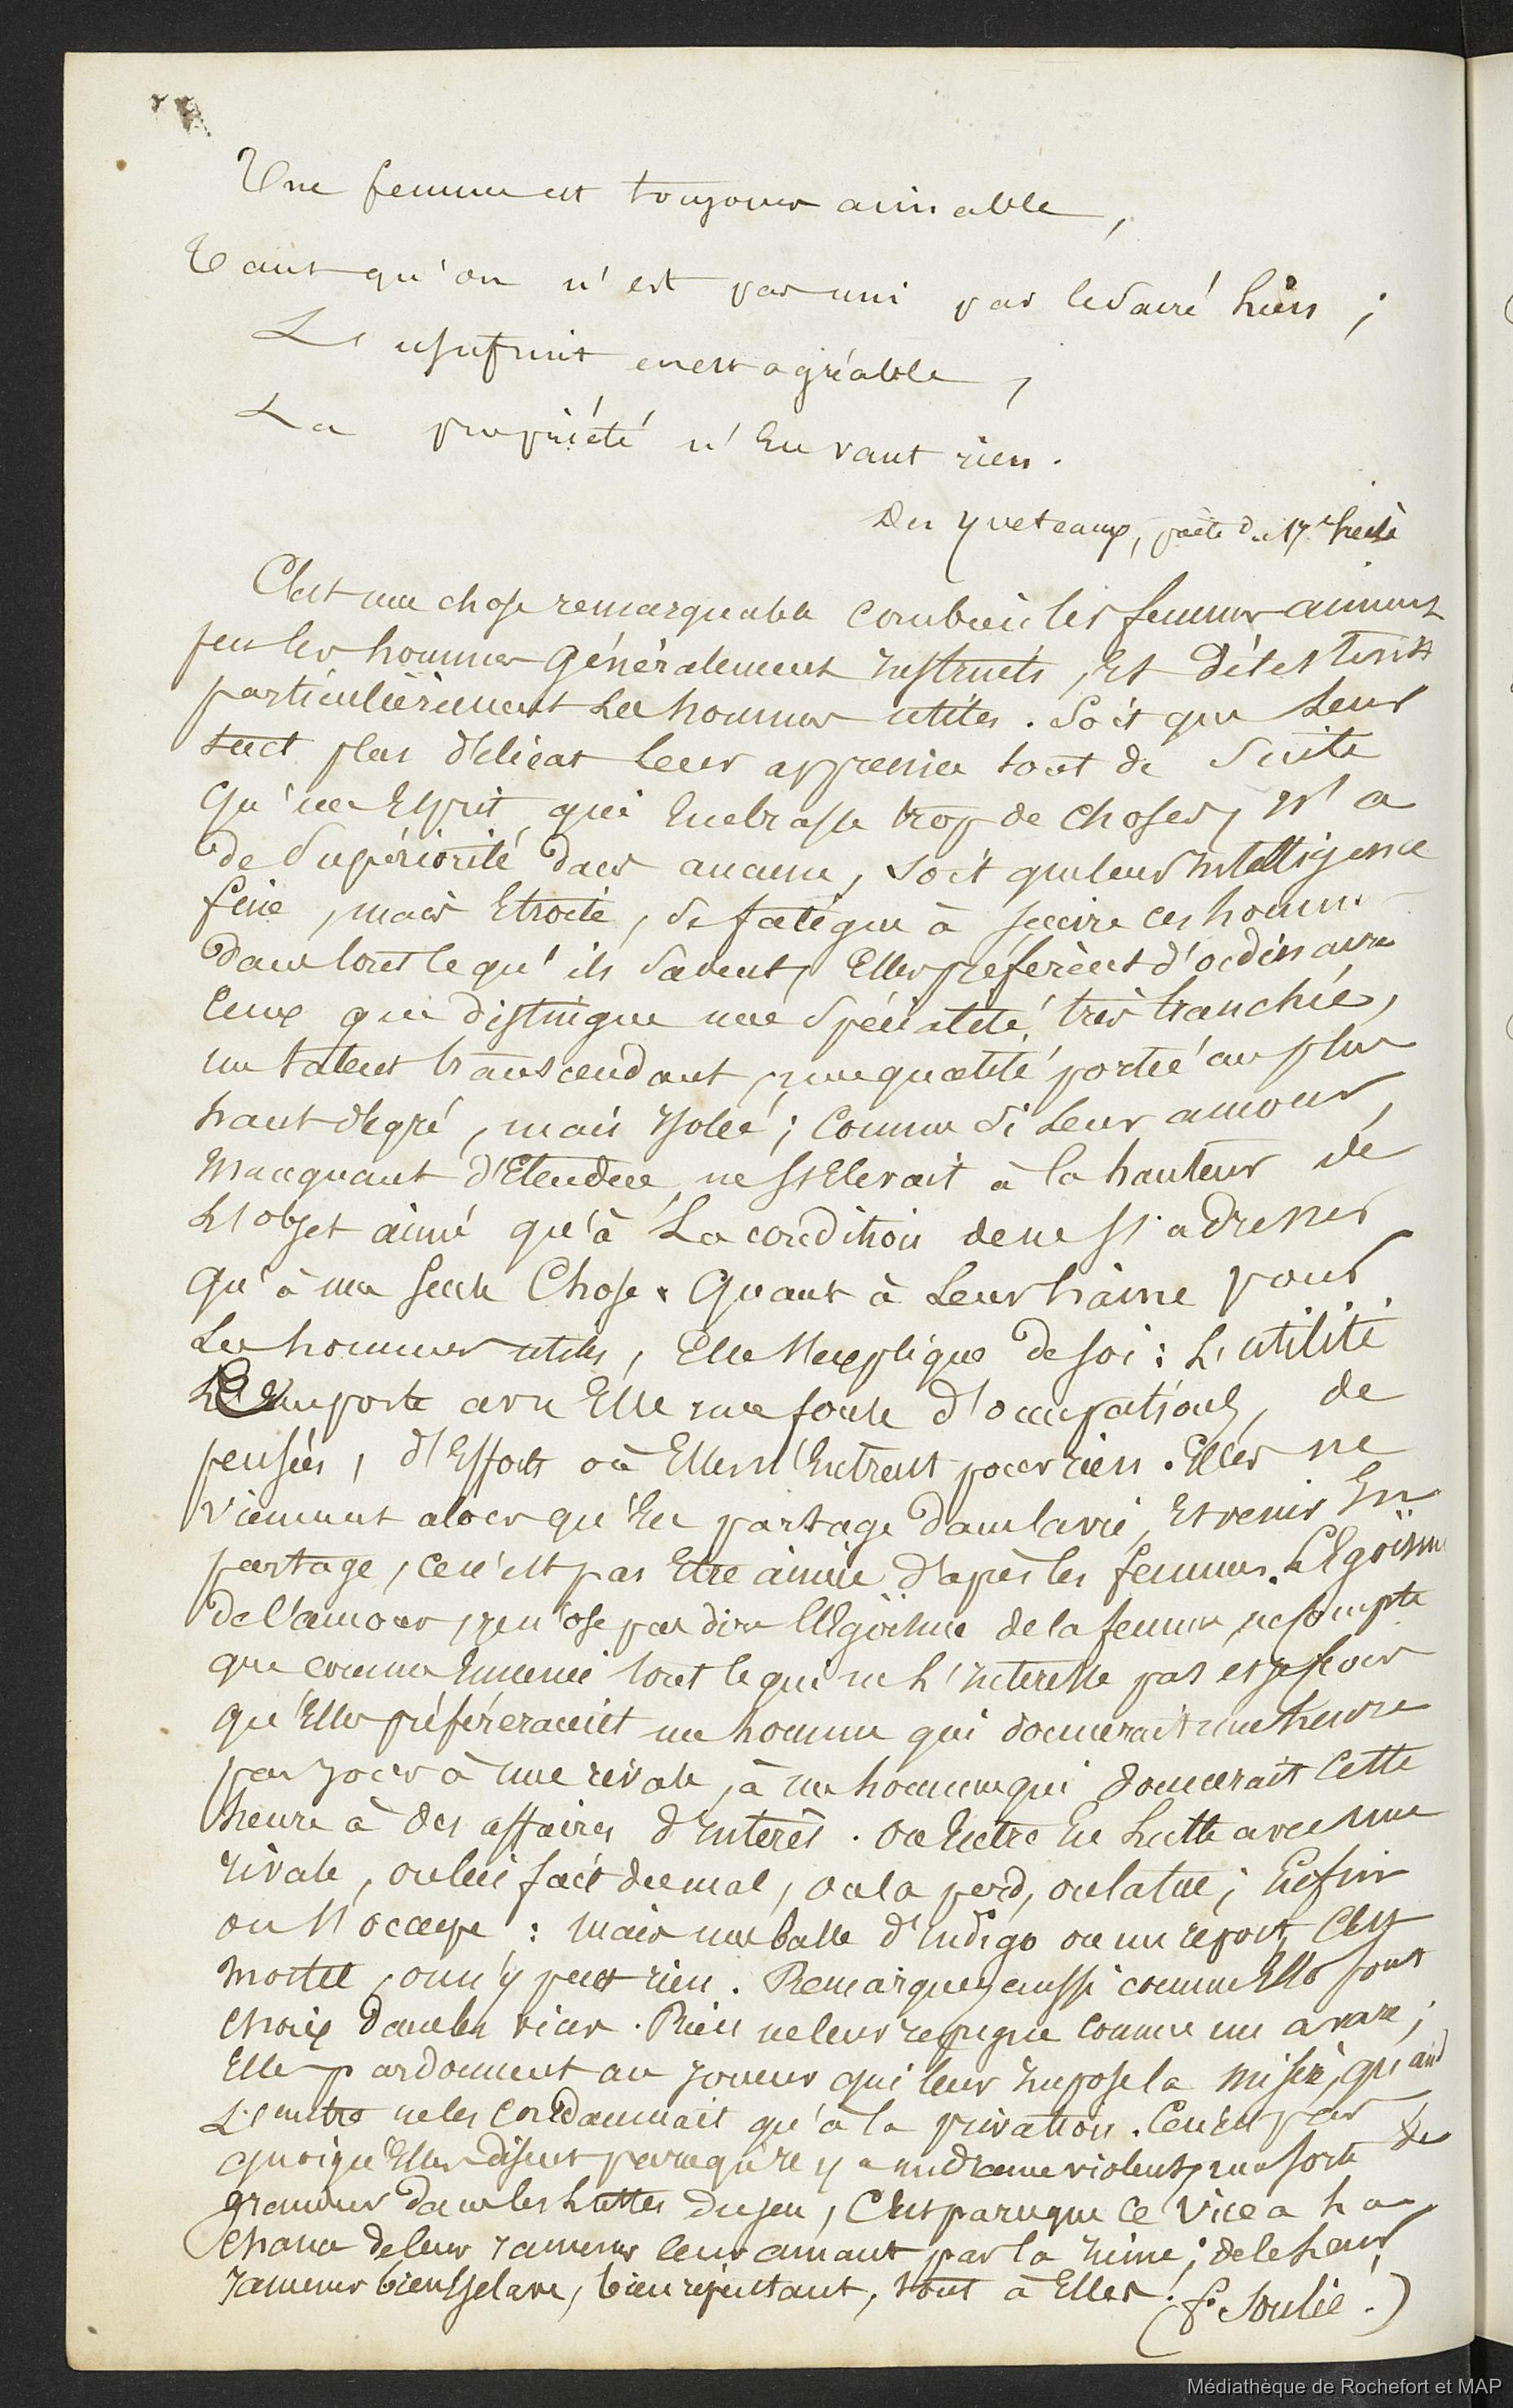 Une femme est toujours aimable,
Tant qu'on n'est pas uni par le sacré lien ;
L'usufruit en est agréable ,
La propriété n'en vaut rien .
Des Yveteaux, poète du 17e siècle
C'est une chose remarquable combien les femmes aiment
peu les hommes généralement instruits, et détestent
particulièrement les hommes utiles . Soit que leur
tact plus délicat leur apprenne tout de suite
qu'un esprit qui embrasse trop de choses, n'a
de supériorité dans aucune, soit que leur intelligence
fine, mais étroite, se fatigue à suivre ces hommes
dans tout ce qu'ils savent, elles préfèrent d'ordinaire
ceux que distingue une spécialité très tranchée,
un talent transcendant, une qualité portée au plus
haut degré, mais isolée ; comme si leur amour,
manquant d'étendue, ne s'élevait à la hauteur de
l'objet aimé qu'à la condition de ne s'adresser
qu'à une seule chose . Quant à leur haine pour
les hommes utiles, elle s'explique de soi : l'utilité
emporte avec elle une foule d'occupations, de
pensées, d'efforts où elles n'entrent pour rien . Elles ne
viennent alors qu'en partage dans la vie, et venir en
partage, ce n'est pas être aimée d'après les femmes. L'égoïsme
de l'amour, je n'ose pas dire l'égoïsme de la femme, ne compte
que comme ennemi tout ce qui ne l'intéresse pas et je crois
qu'elles préféreraient un homme qui donnerait une heure
par jour à une rivale, à un homme qui donnerait cette
heure à des affaires d'intérêt . On entre en lutte avec une
rivale, on lui fait du mal, on la perd, on la tue ; enfin
on s'occupe : mais une balle d'indigo ou un report, c'est
mortel, on n'y peut rien . Remarquez aussi comme elles font
choix dans les vices . Rien ne leur répugne comme un avare ;
elles pardonnent au joueur qui leur impose la misère, quand
l'autre ne les condamnait qu'à la privation . Ce n'est pas
quoiqu'elles disent parce qu'il y a un drame violent, une sorte de
grandeur dans les luttes du jeu, c'est parce que ce vice a la
chance de leur ramener leur amant par la ruine ; de le leur
ramener bien esclave, bien repentant, tout à elles.
(f. Soulié.)
Médiathèque de Rochefort et MAP